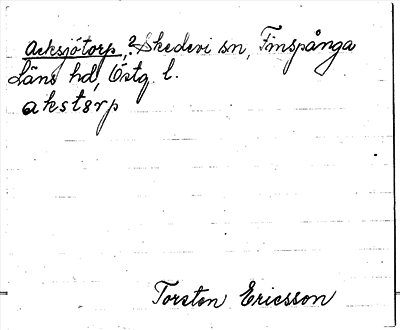 Acksjötorp,? Skedevi sn, Finspånga
läns hd, Östg l.
akstərp
Torsten Ericsson